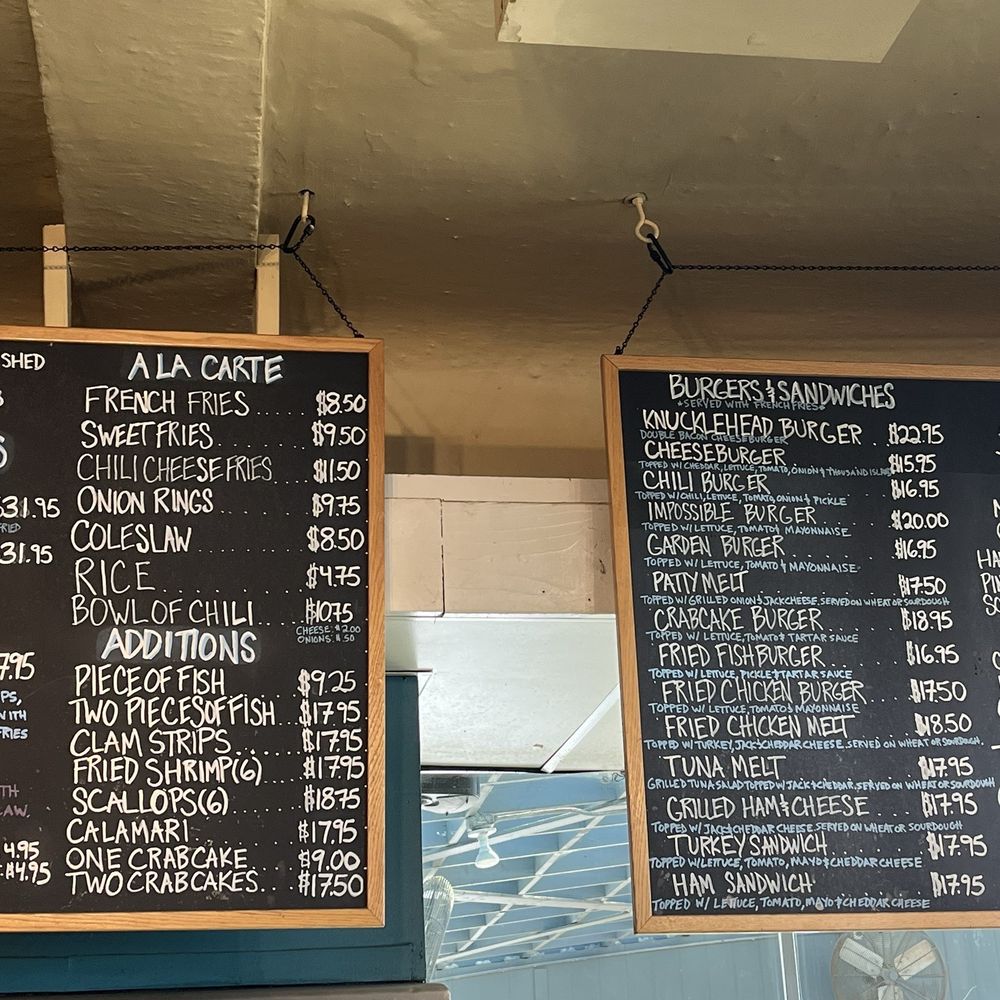 SHED
$31.95
31.95
7.95
PS,
WITH
FRIES
LAW.
4.95
$4.95
A LA CARTE
FRENCH FRIES.... $8.50
SWEET FRIES.... $9.50
CHILI CHEESE FRIES $11.50
ONION RINGS $9.75
COLESLAW $8.50
RICE $4.75
BOWL OF CHILI $10.75
CHEESE: $2.00
ONIONS: $.50
ADDITIONS
PIECE OF FISH $9.25
TWO PIECES OF FISH $17.95
CLAM STRIPS $17.95
FRIED SHRIMP (6) $17.95
SCALLOPS (6) $18.75
CALAMARI $17.95
ONE CRABCAKE $9.00
TWO CRABCAKES $17.50
BURGERS & SANDWICHES
*SERVED WITH FRENCH FRIES*
KNUCKLEHEAD BURGER $22.95
DOUBLE BACON CHEESEBURGER
CHEESEBURGER $15.95
TOPPED W/ CHEDDAR, LETTUCE, TOMATO, ONION & THOUSAND ISLAND
CHILI BURGER $16.95
TOPPED W/ CHILI, LETTUCE, TOMATO, ONION & PICKLE
IMPOSSIBLE BURGER $20.00
TOPPED W/ LETTUCE, TOMATO & MAYONNAISE
GARDEN BURGER $16.95
TOPPED W/ LETTUCE, TOMATO & MAYONNAISE
PATTY MELT $17.50
TOPPED W/ GRILLED ONION & JACK CHEESE. SERVED ON WHEAT OR SOURDOUGH
CRABCAKE BURGER $18.95
TOPPED W/ LETTUCE, TOMATO & TARTAR SAUCE
FRIED FISH BURGER $16.95
TOPPED W/ LETTUCE, PICKLE & TARTAR SAUCE
FRIED CHICKEN BURGER $17.50
TOPPED W/ LETTUCE, TOMATO & MAYONNAISE
FRIED CHICKEN MELT $18.50
TOPPED W/ TURKEY, JACK & CHEDDAR CHEESE. SERVED ON WHEAT OR SOURDOUGH.
TUNA MELT $17.95
GRILLED TUNA SALAD TOPPED W/ JACK & CHEDDAR, SERVED ON WHEAT OR SOURDOUGH
GRILLED HAM & CHEESE $17.95
TOPPED W/ JACK & CHEDDAR CHEESE SERVED ON WHEAT OR SOURDOUGH
TURKEY SANDWICH $17.95
TOPPED W/ LETTUCE, TOMATO, MAYO & CHEDDAR CHEESE
HAM SANDWICH $17.95
TOPPED W/ LETTUCE, TOMATO, MAYO & CHEDDAR CHEESE